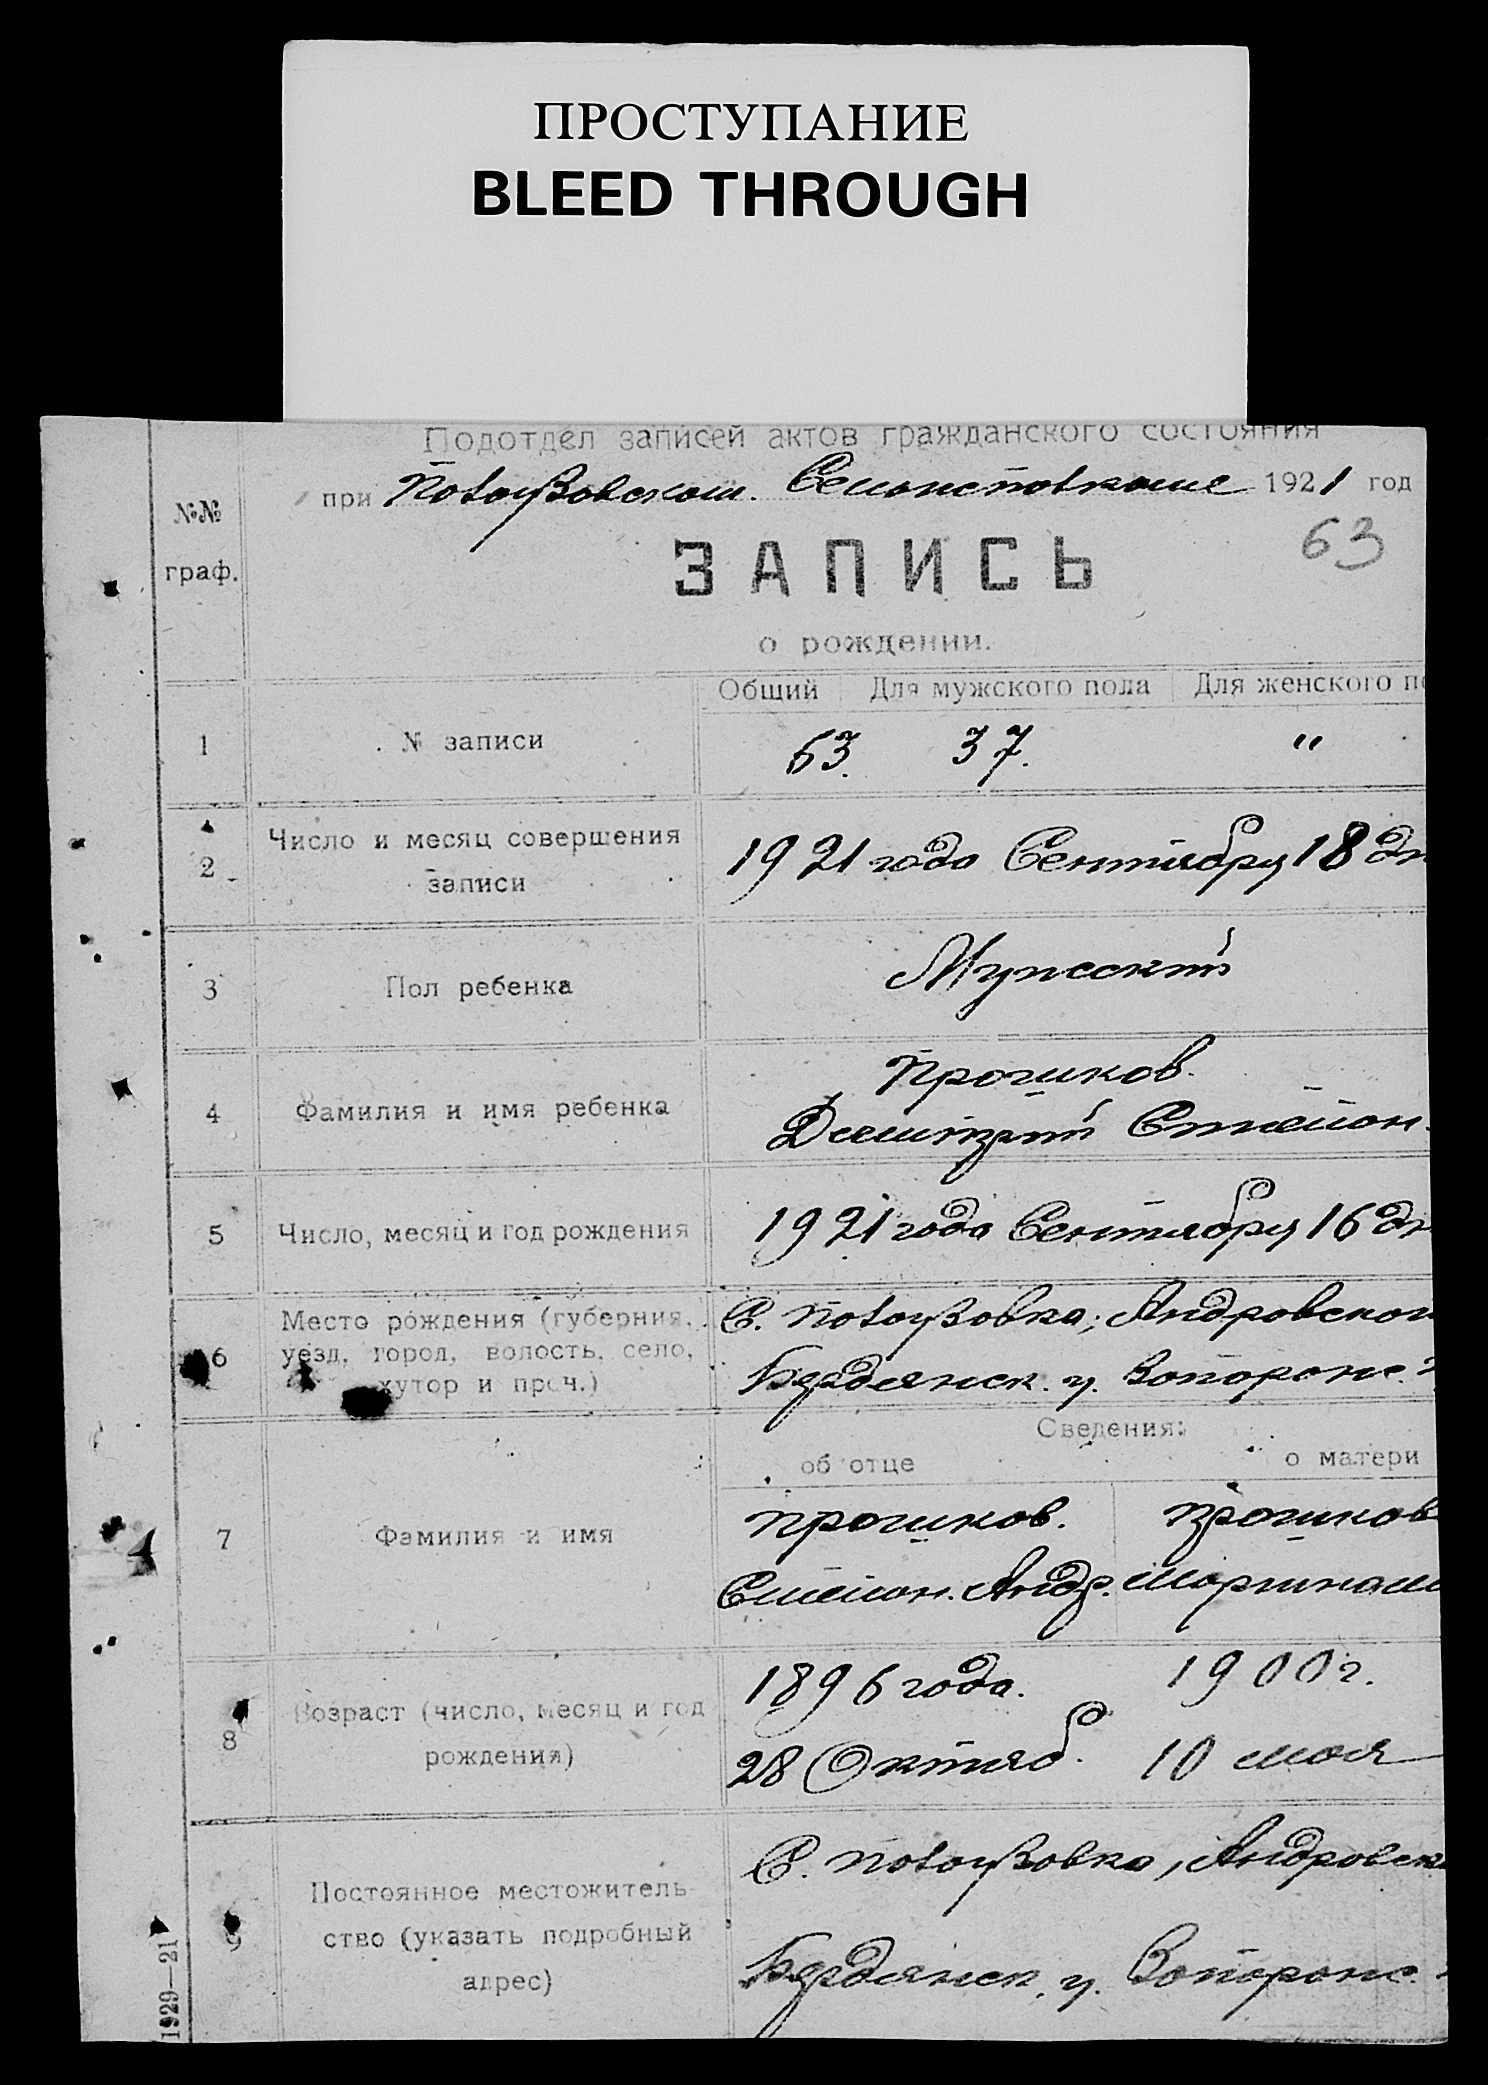 ПРОСТУПАНИЕ
BLEED THROUGH
Подотдел записей актов гражданского состояния
при 1921 год
№№
граф.
63
ЗАПИСЬ
о рождении.
Общий Для мужского пола Для женского по
1 № записи 63. 37. "
2 Число и месяц совершения
записи
1921 года Сентября 18 дн
3 Пол ребенка Мужской
4 Фамилия и имя ребенка
Прошков.
Димитрий Стефан.
5 Число, месяц и год рождения 1921 года Сентября 16 дн
6 Место рождения (губерния,
уезд, город, волость, село,
хутор и проч.)
С. Андровской
Бердянск. у. Запорож.
Сведения:
об отце о матери
7 Фамилия и имя
Прошков. Прошков
Стефан. Андр.
8 Возраст (число, месяц и год
рождения)
1896 года. 1900 г.
28 Октяб. 10 мая
9 Постоянное местожитель-
ство (указать подробный
адрес)
С. Андровск
Бердянск. у. Запорож.
1929—21